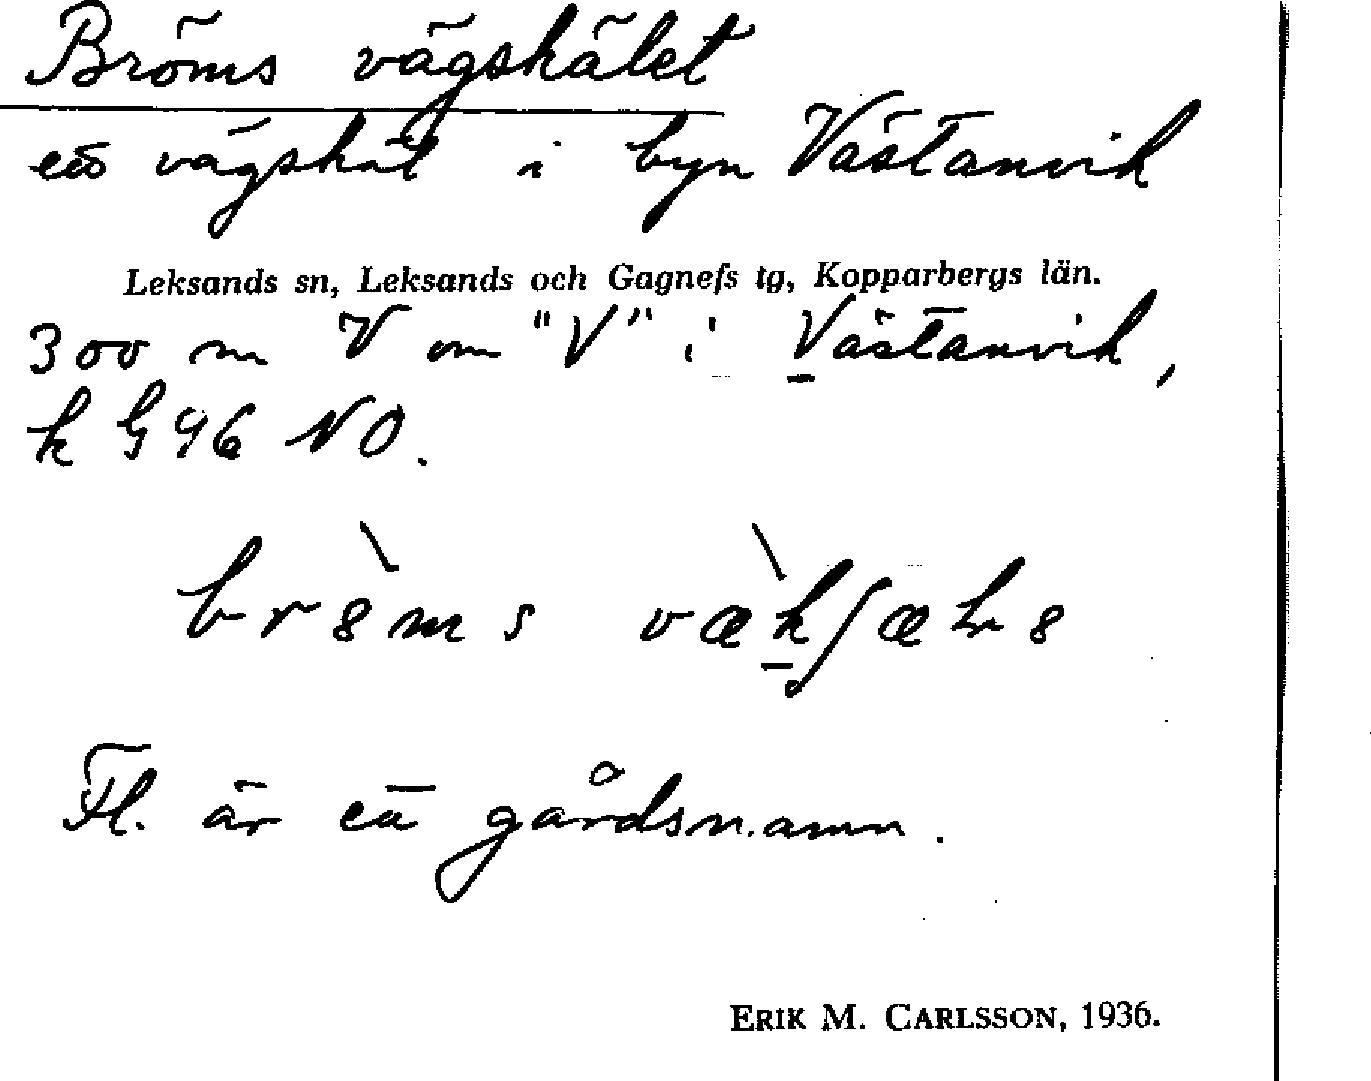 Bröms vägskälet
ett vägskäl i byn Västanvik
Leksands sn, Leksands och Gagnefs tg, Kopparbergs län.
300 m V om "V" i Västanvik,
k G 96 NO.
Fl. är ett gårdsnamn.
ERIK M. CARLSSON, 1936.